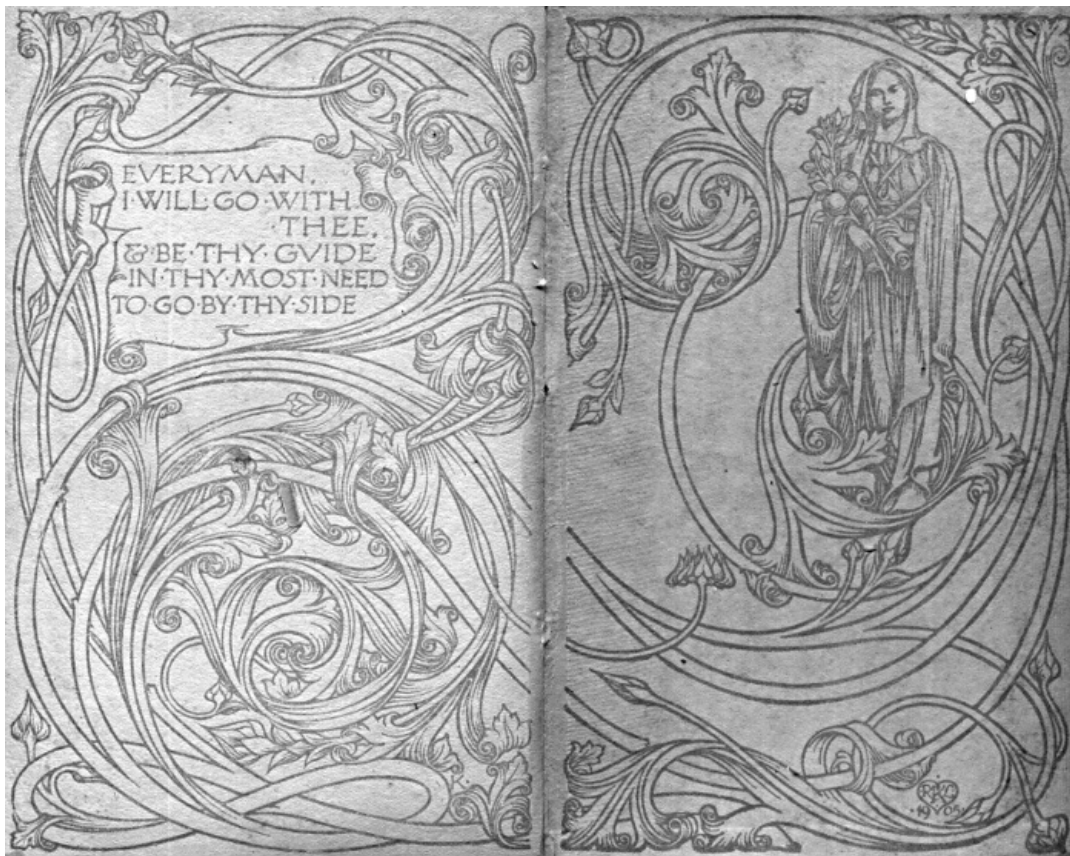 EVERYMAN,
I·WILL·GO·WITH
·THEE,
&·BE·THY·GVIDE
·IN·THY·MOST·NEED
TO·GO·BY·THY·SIDE